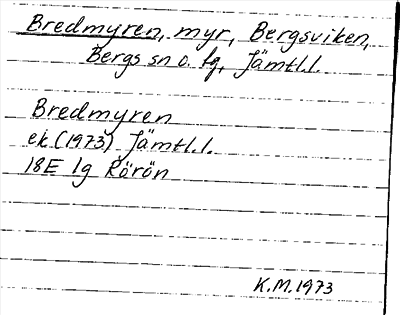 Bredmyren, myr, Bergsviken,
Bergs sn o. tg, Jämtl.l.
Bredmyren
ek (1973) Jämtl.l.
18E 1g Rörön
K.M.1973